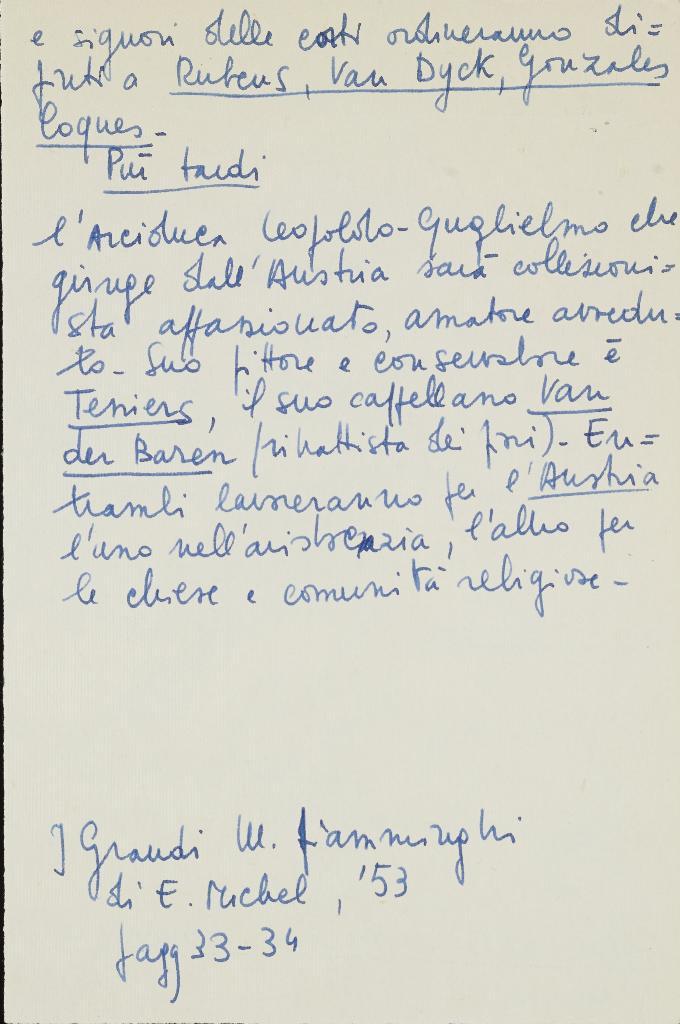 e signori delle corti ordineranno di=
pinti a Rubens, Van Dyck, Gonzales
Coques-
Più tardi
l'Arciduca Leopoldo-Guglielmo che
giunge dall'Austria sarà collezioni=
sta appassionato, amatore avvedu=
to- Suo pittore e conservatore è
Teniers, il suo cappellano Van
der Baren (ritrattista dei fiori)- En=
trambi lavoreranno per l'Austria
l'uno nell'aristocrazia, l'altro per
le chiese e comunità religiose-
I Grandi M. fiamminghi
di E. Michel, '53
pagg 33-34